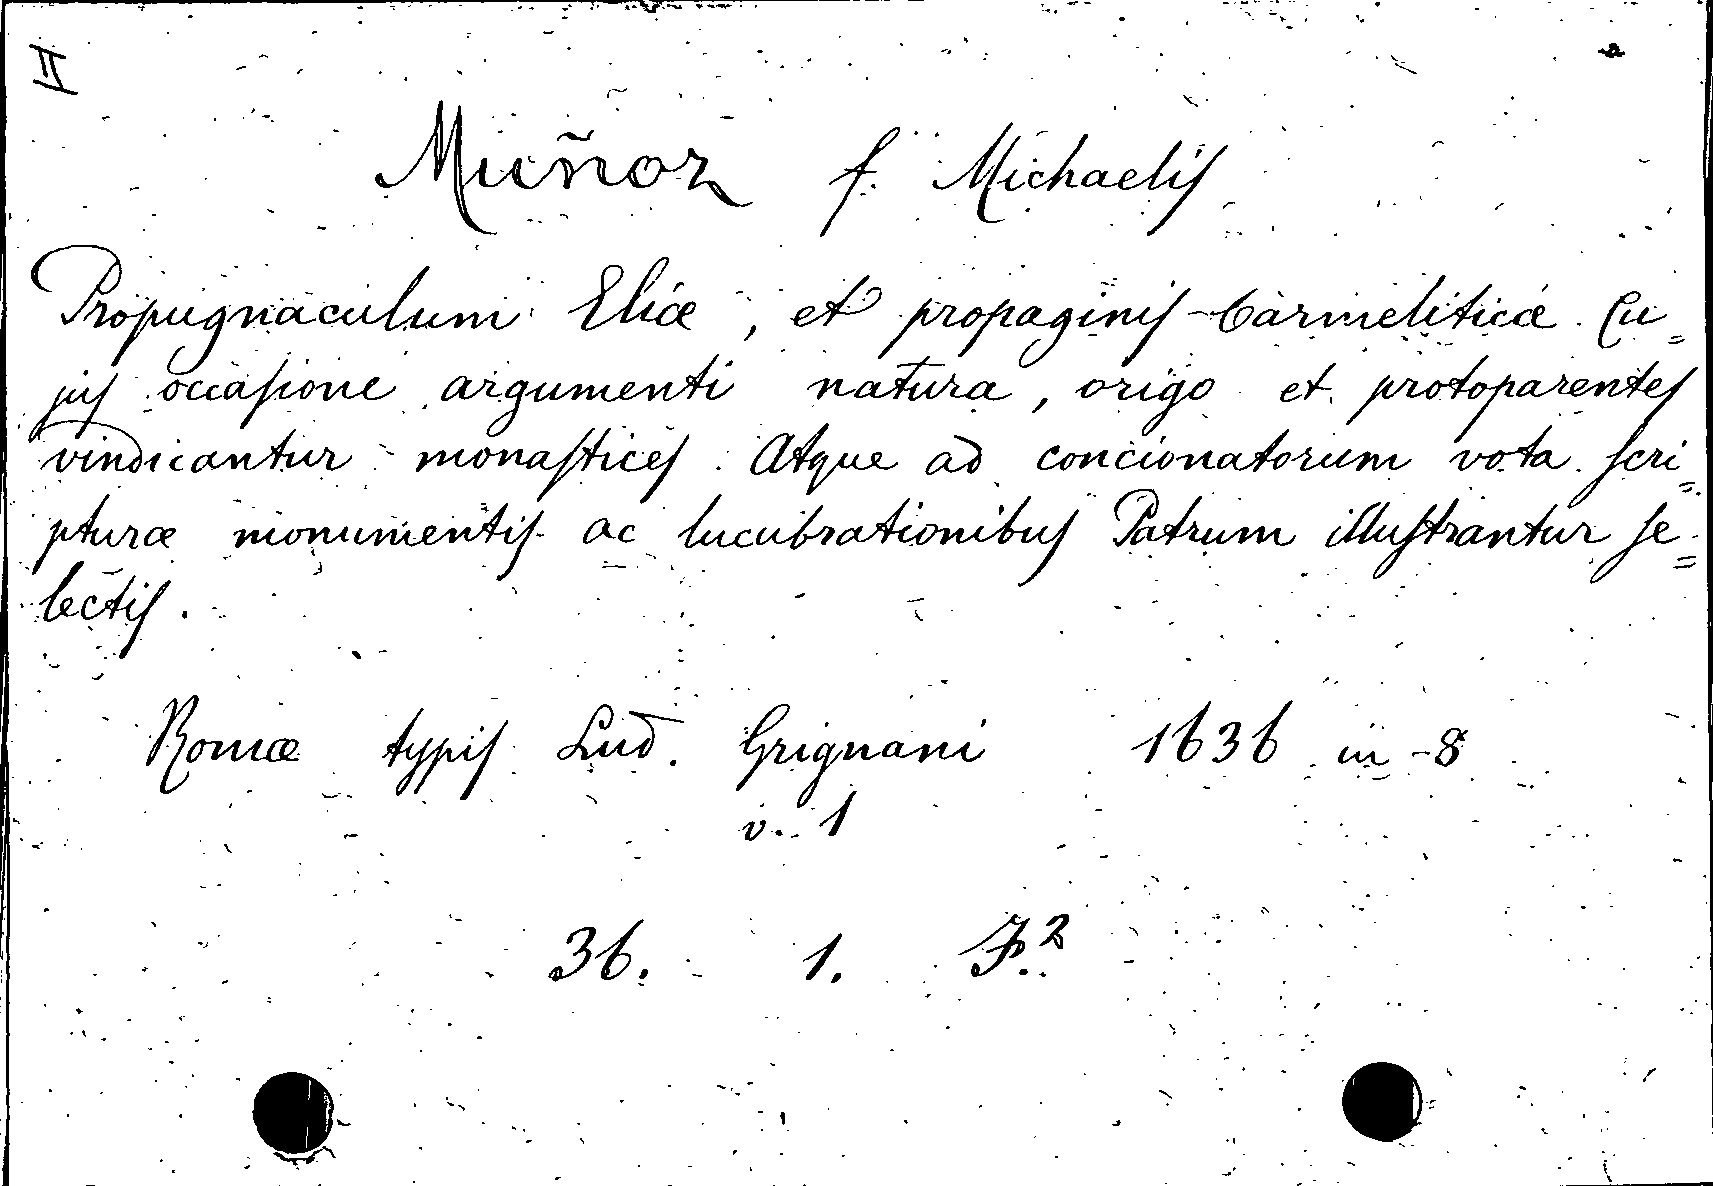 II
Muñoz f. Michaelis
Propugnaculum Eliæ, et propaginis Carmeliticæ. Cu=
jus occasione argumenti natura, origo et protoparentes
vindicantur monastices. Atque ad concionatorum vota scri=
pturæ monumentis ac lucubrationibus Patrum illustrantur se=
lectis.
Romæ typis Lud. Grignani 1636 in-8
v. 1
36. 1. F.2